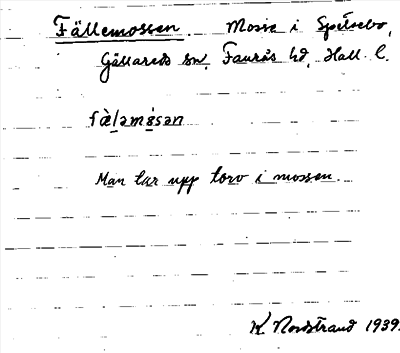 Fällemossen. Mosse i Spetsebo,
Gällareds sn, Faurås hd, Hall. l.
fæ̀lǝmósǝn
Man tar upp torv i mossen.
K. Nordstrand 1939.